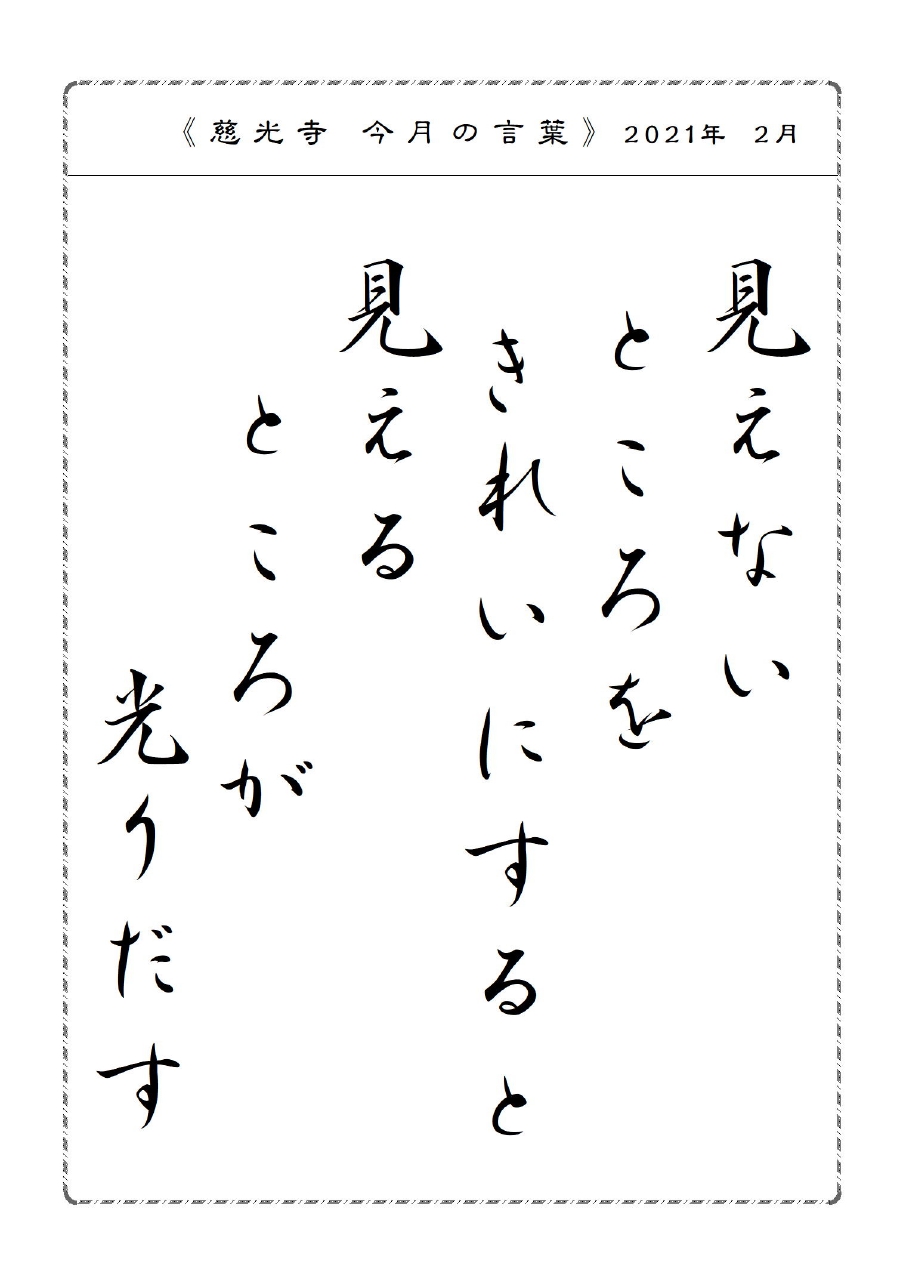 《慈光寺 今月の言葉》 2021年 2月
見えない
ところを
きれいにすると
見える
ところが
光りだす